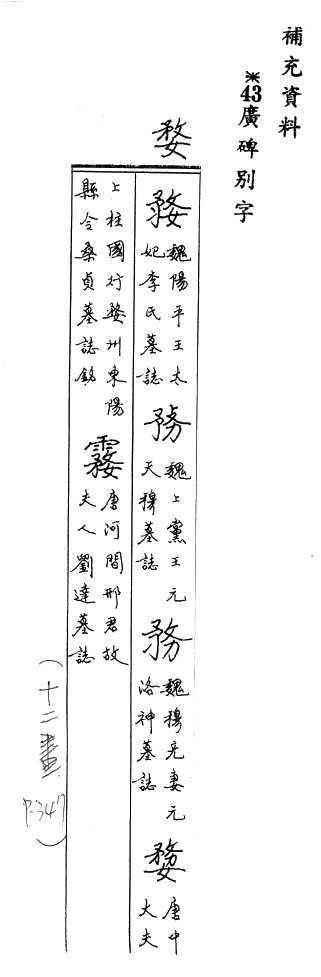 補充資料
※43廣碑別字
婺
婺 魏陽平王太妃李氏墓誌 務 魏上黨王元天穆墓誌 務 魏穆亮妻元洛神墓誌 婺 唐中大夫
上柱國行婺州東陽縣令桑貞墓誌銘 霧 唐河間邢君故夫人劉達墓誌
(十二畫 P.347)